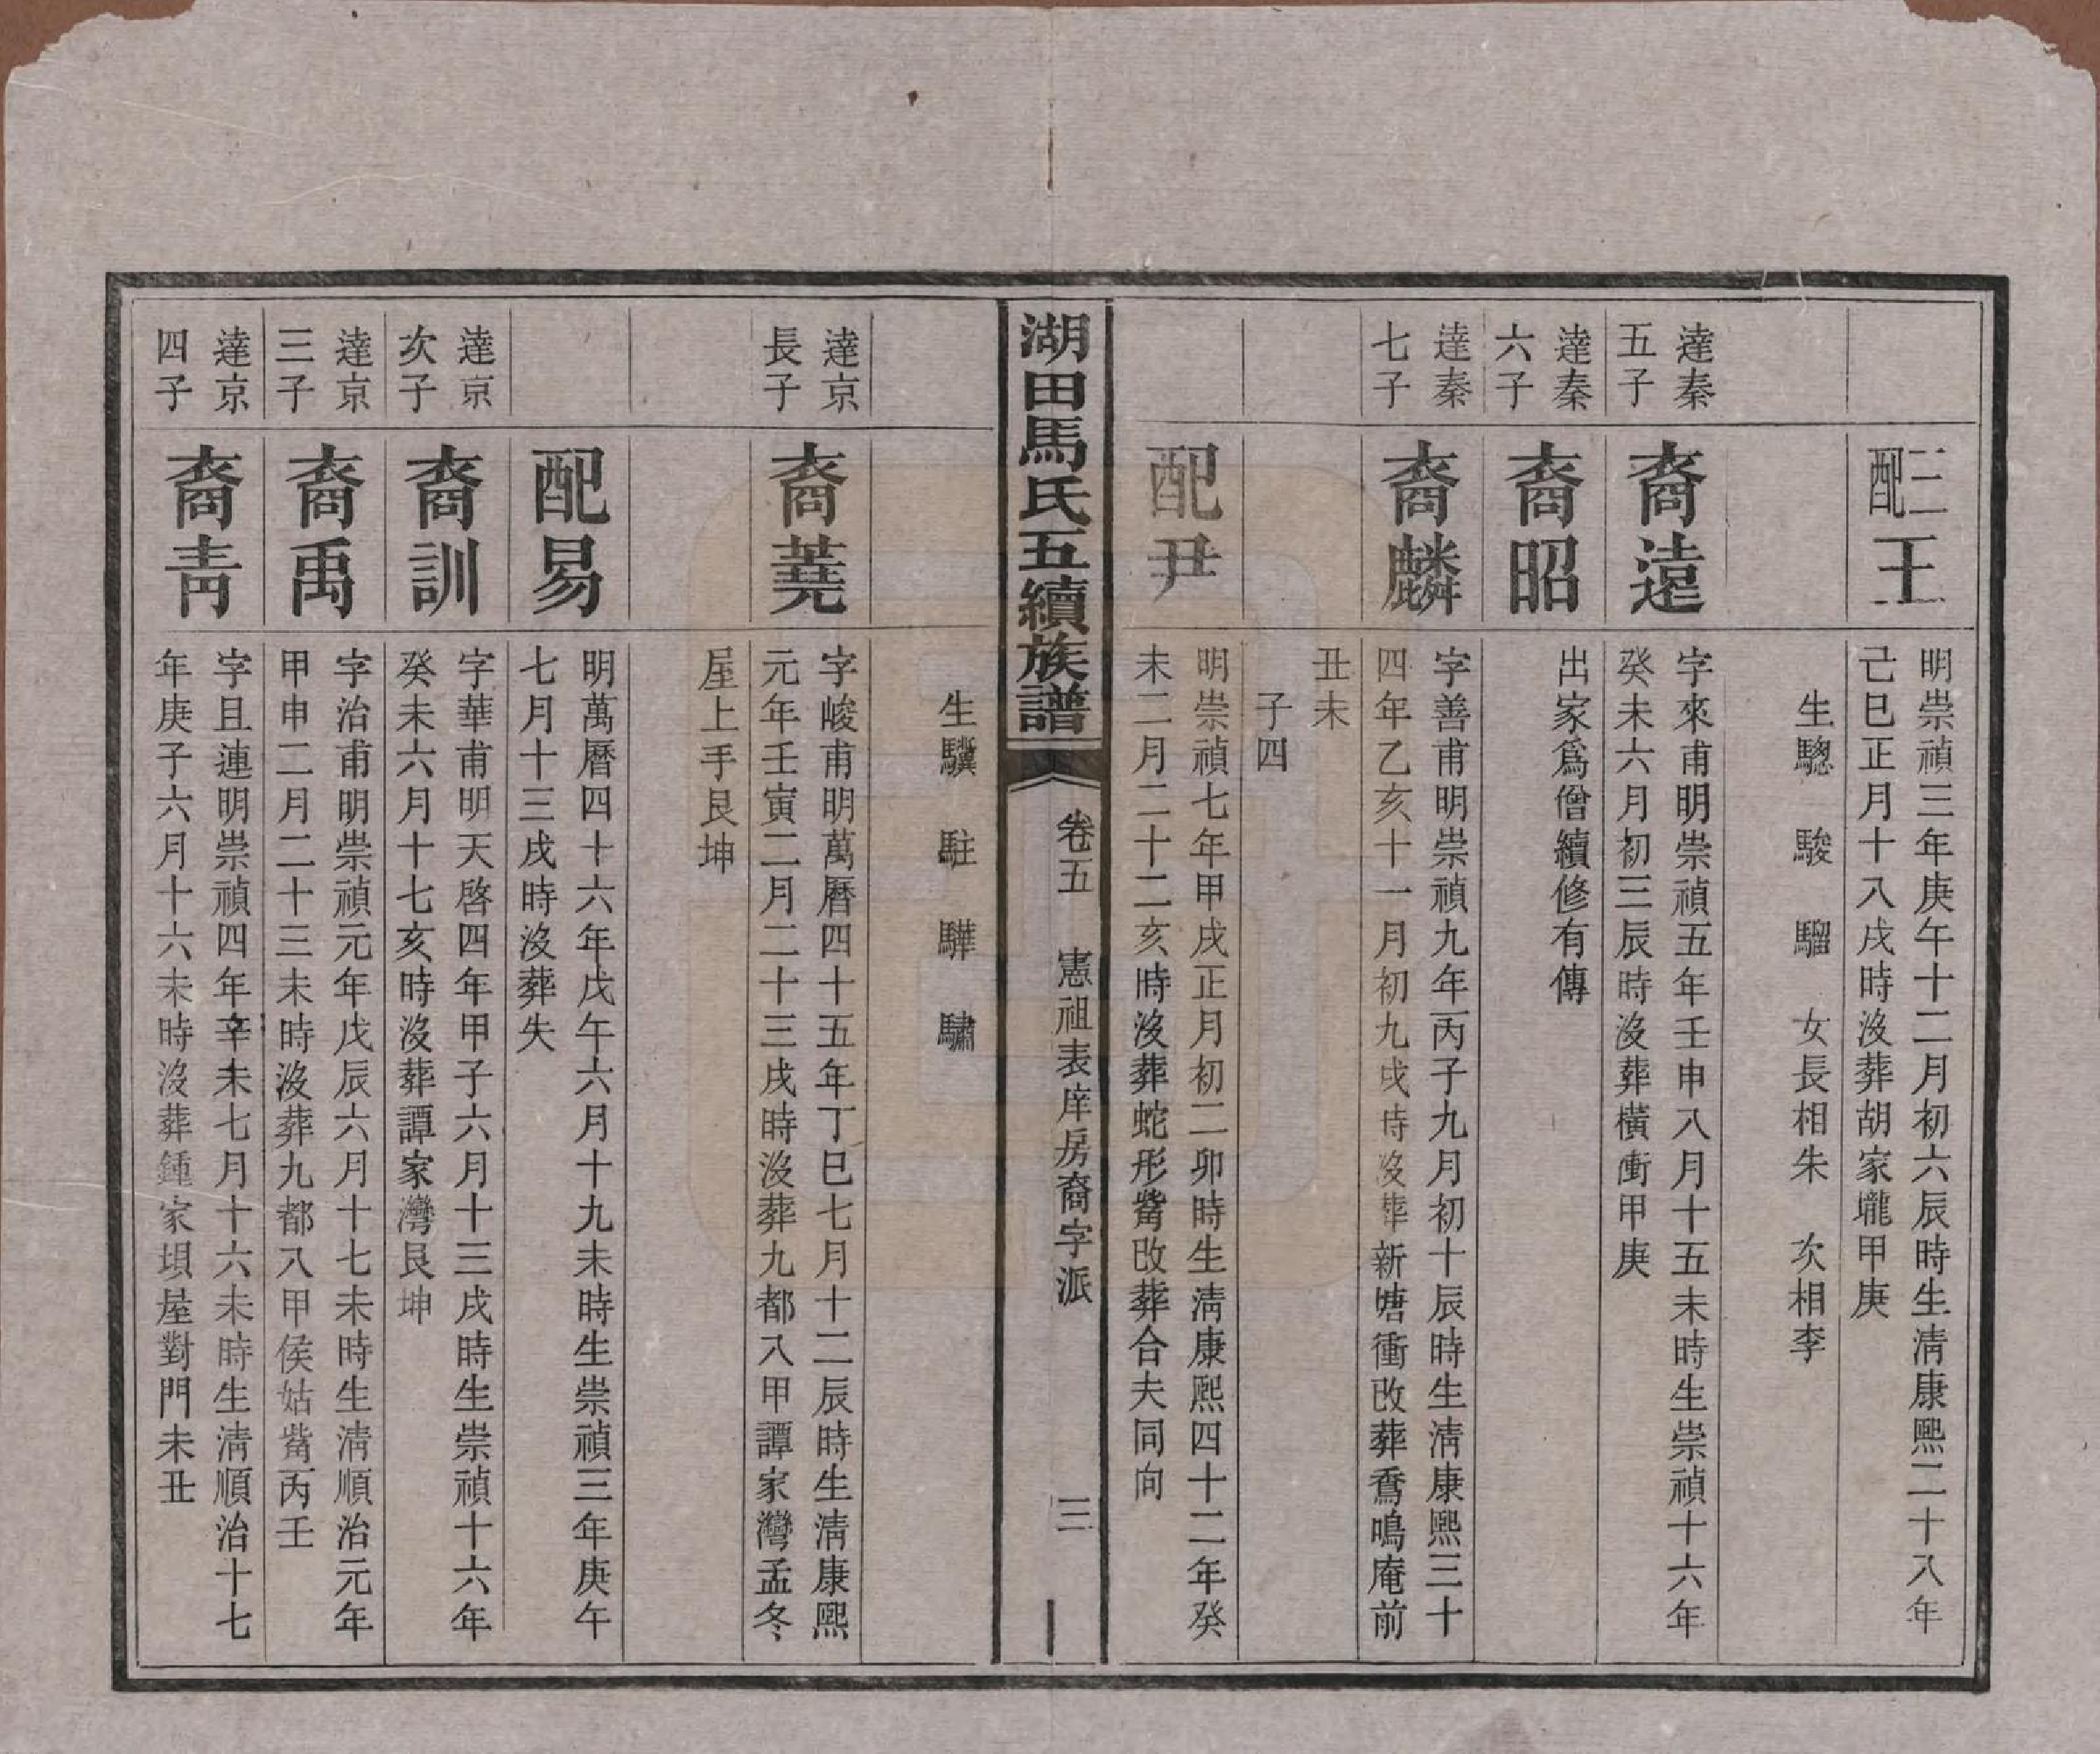 三配王
明崇禎三年庚午十二月初六辰時生清康熙二十八年
己巳正月十八戌時沒葬胡家壠甲庚
生驄　駿　騮　女長相朱　次相李
達秦
五子
裔遠
字來甫明崇禎五年壬申八月十五未時生崇禎十六年
癸未六月初三辰時沒葬橫衝甲庚
達秦
六子
裔昭
出家爲僧續修有傳
達秦
七子
裔麟
字善甫明崇禎九年丙子九月初十辰時生清康熙三十
四年乙亥十一月初九戌時沒葬新塘衝改葬鴌鳴庵前
丑未
子四
配尹
明崇禎七年甲戌正月初二卯時生清康熙四十二年癸
未二月二十二亥時沒葬蛇形觜改葬合夫同向
湖田馬氏五續族譜
卷五　憲祖表庠房裔字派
三
生驥　駐　驊　驌
達京
長子
裔蕘
字峻甫明萬曆四十五年丁巳七月十二辰時生清康熙
元年壬寅二月二十三戌時沒葬九都八甲譚家灣孟冬
屋上手艮坤
配易
明萬曆四十六年戊午六月十九未時生崇禎三年庚午
七月十三戌時沒葬失
達京
次子
裔訓
字華甫明天啓四年甲子六月十三戌時生崇禎十六年
癸未六月十七亥時沒葬譚家灣艮坤
達京
三子
裔禹
字治甫明崇禎元年戊辰六月十七未時生清順治元年
甲申二月二十三未時沒葬九都八甲侯姑觜丙壬
達京
四子
裔青
字且連明崇禎四年辛未七月十六未時生清順治十七
年庚子六月十六未時沒葬鍾家垻屋對門未丑